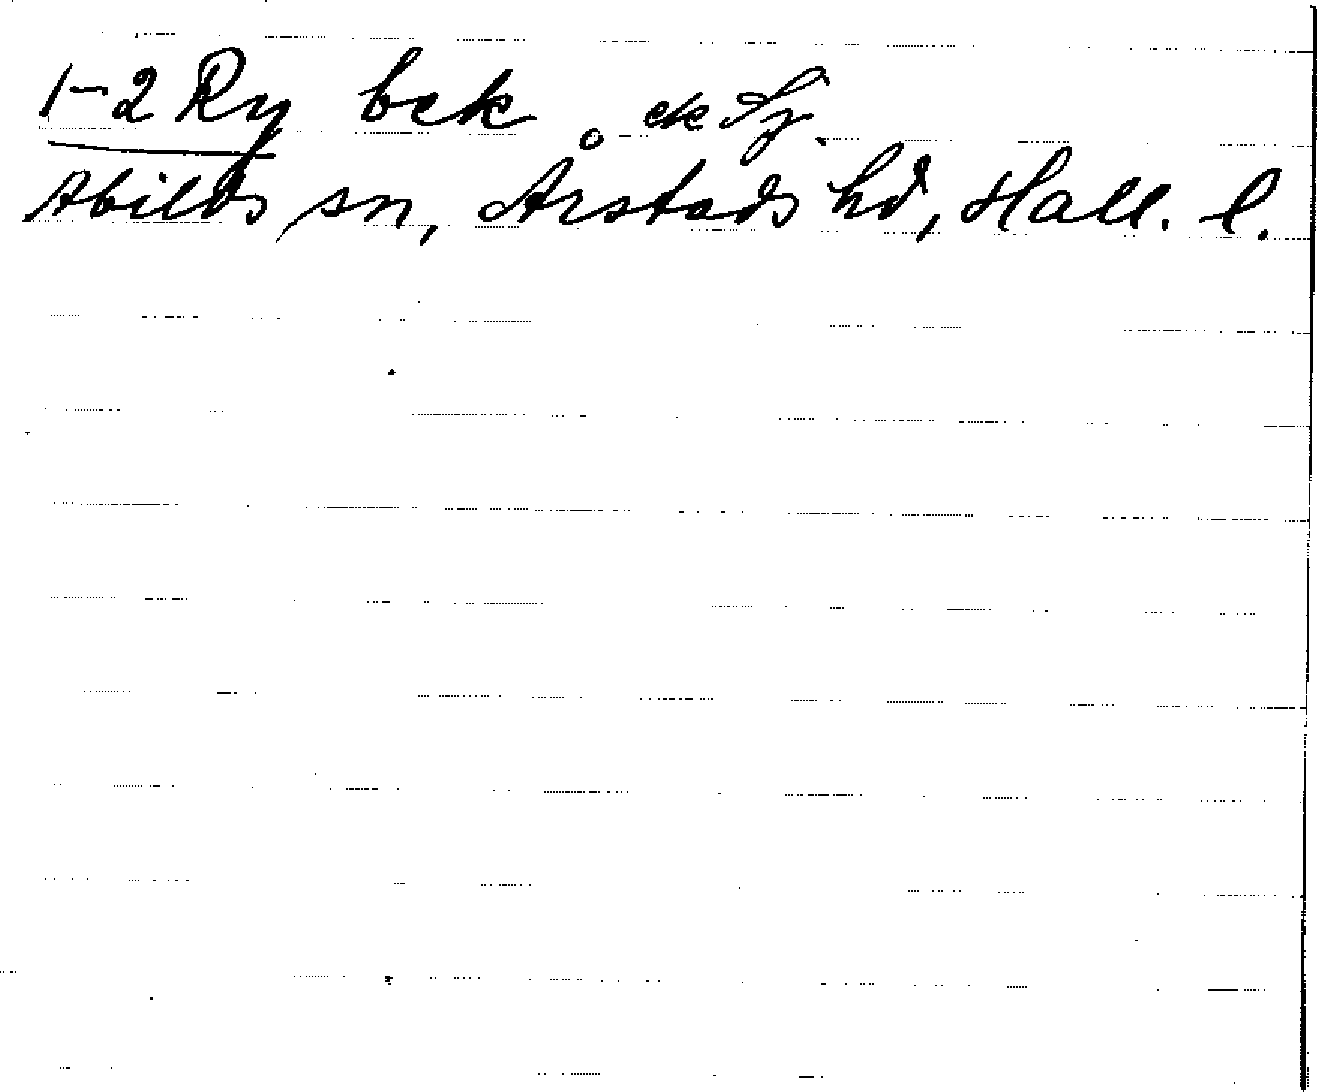 1-2 Ry bek. ek Sy.
Abilds sn, Årstads hd, Hall. l.